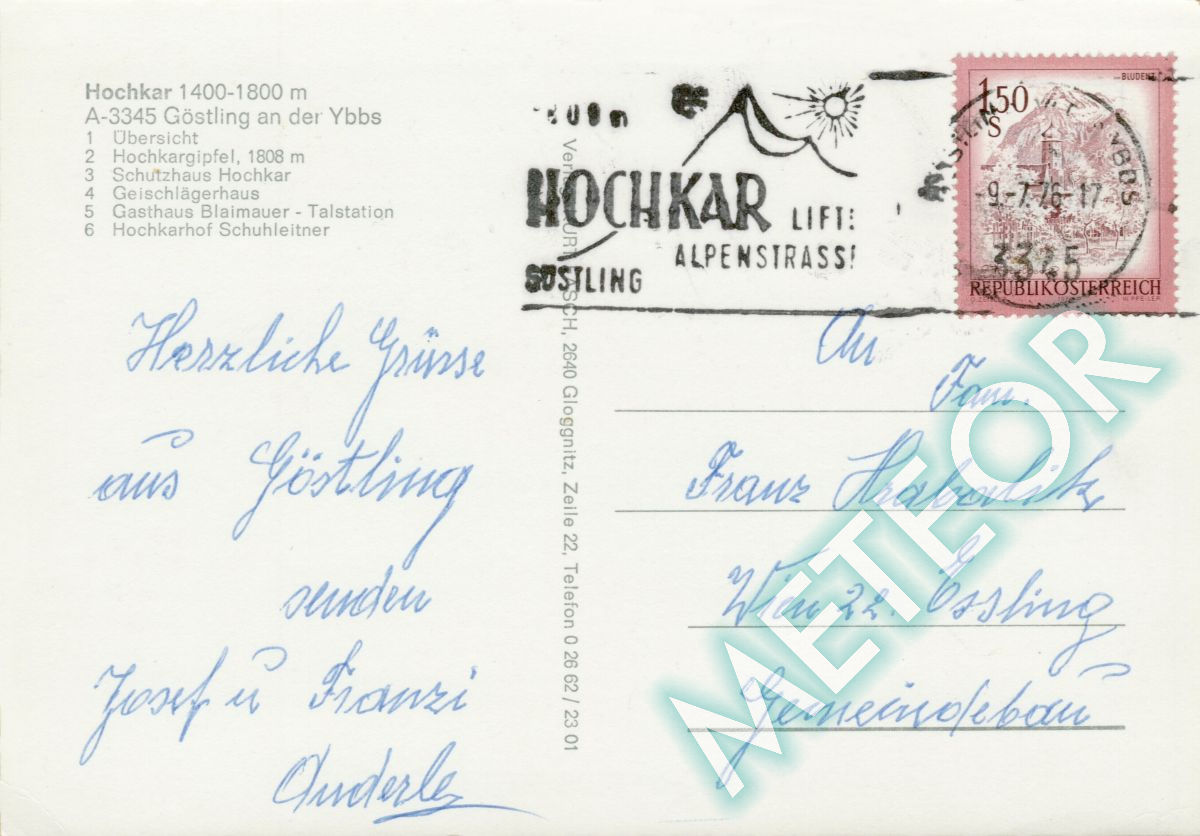 Hochkar 1400-1800 m
A-3345 Göstling an der Ybbs
1 Übersicht
2 Hochkargipfel, 1808 m
3 Schutzhaus Hochkar
4 Geischlägerhaus
5 Gasthaus Blaimauer - Talstation
6 Hochkarhof Schuhleitner
HOCHKAR LIFTE
ALPENSTRASSE
GÖSTLING
BLUDENZ
1.50
S
YBBS
-9.-7.76-17
3345
REPUBLIK ÖSTERREICH
ASCH, 2640 Gloggnitz, Zeile 22, Telefon 0 26 62 / 23 01
Herzliche Grüsse
aus Göstling
senden
Josef u Franzi
Anderle
An
Fam.
Franz Hrabalik
Wien 22. Essling
Gemeindebau
METEOR